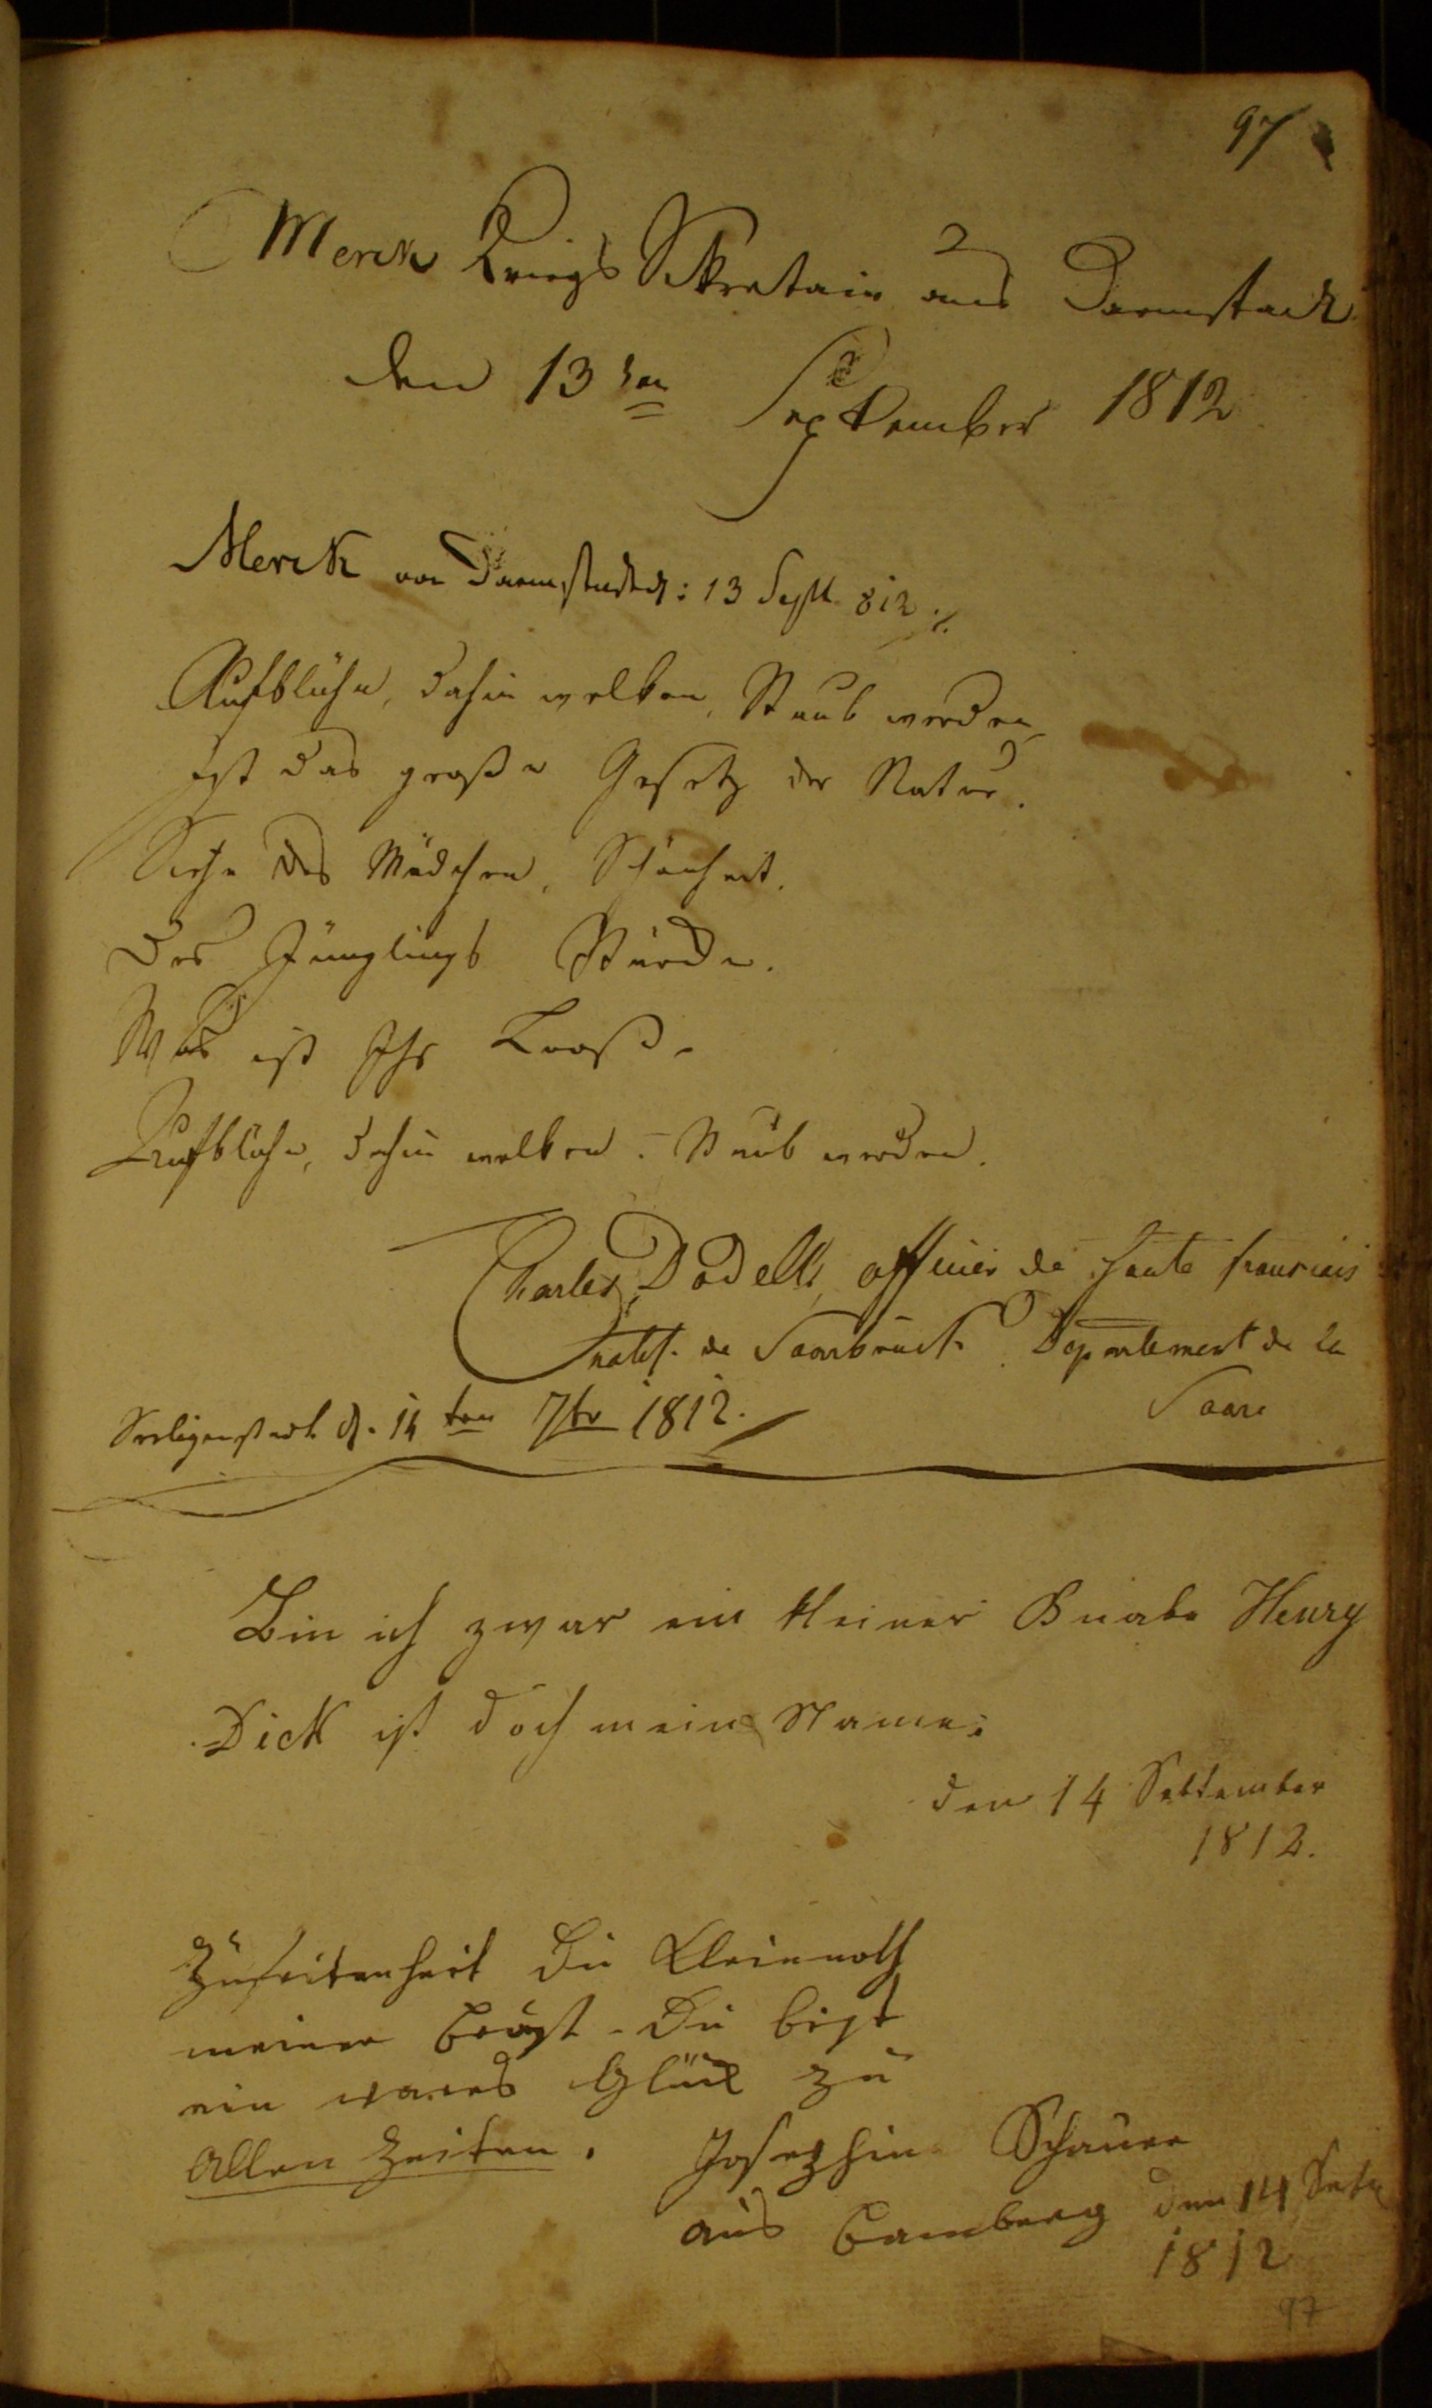 97
Merck Kriegs Sekretair aus Darmstadt
den 13ten September 1812
Merck von Darmstadt d: 13 Sept. 812
Aufblühn, dahin welken, Staub werden
ist das große Gesetz der Natur.
Siehe des Mädchen, Schönheit.
des Jünglings Würde.
Was ist Ihr Looß.
Aufblühn, dahin welken. Staub werden.
Charles Dodell, officier de santé francais
natif. de Saarbruck Departement de la
Saare
Seeligenstadt d. 14ten 7br 1812.
Bin ich zwar ein kleiner Knabe Henry
Dick ist doch mein Name.
den 14 September
1812.
Zufritenheit Du Kleinnoth
meiner Brust. Du bist
ein wares Glück zu
allen Zeiten. Josephin Schauer
aus Bamberg den 14 Sete
1812
97